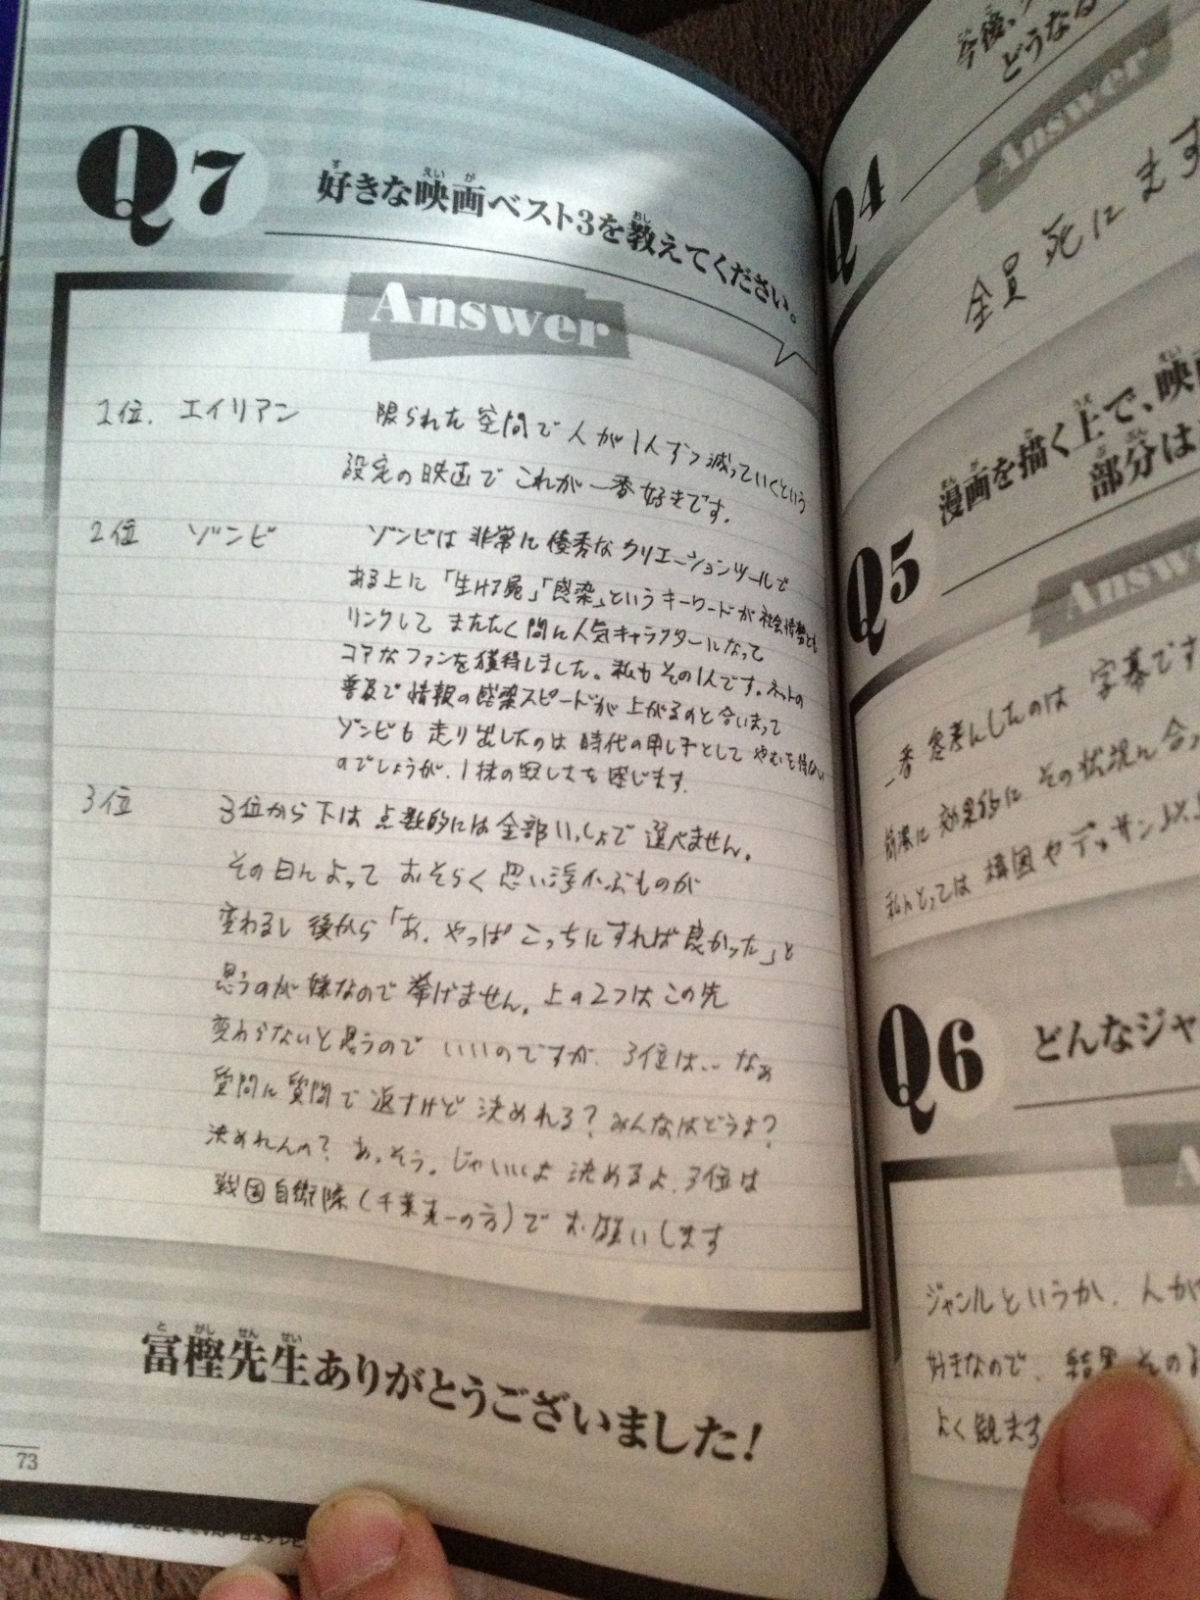 Q7
好きな映画ベスト3を教えてください。
Answer
1位. エイリアン
限られた空間で人が1人ずつ減っていくという
設定の映画でこれが一番好きです。
2位 ゾンビ
ゾンビは非常に優秀なクリエーションツールで
ある上に「生ける屍」「感染」というキーワードが社会情勢とも
リンクしてまたたく間に人気キャラクターになって
コアなファンを獲得しました。私もその1人です。ネットの
普及で情報の感染スピードが上がるのと合いまって
ゾンビも走り出したのは時代の申し子としてやむを得ない
のでしょうが、1抹の寂しさを感じます.
3位
3位から下は点数的には全部いっしょで選べません。
その日によっておそらく思い浮かぶものが
変わるし後から「あ.やっぱこっちにすれば良かった」と
思うのが嫌なので挙げません。上の2つはこの先
変わらないと思うのでいいのですが、3位は‥なぁ
質問に質問で返すけど決めれる?みんなはどうよ?
決めれんの?あ、そう。じゃいいよ決めるよ、3位は
戦国自衛隊(千葉真一の方)でお願いします
冨樫先生ありがとうございました!
73
Q4
今後、
どうなる
Answer
全員死にます
Q5
漫画を描く上で、映
部分は
Answe
一番参考にしたのは字幕です
簡潔に効果的にその状況に合っ
私にとっては構図やデッサン
Q6
どんなジャ
A
ジャンルというか、人が
好きなので、結果その
よく観ます